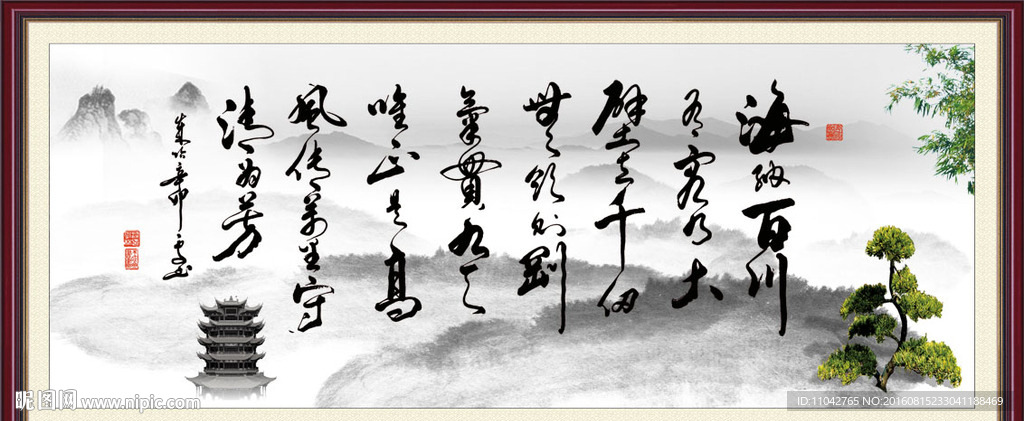 海纳百川
有容乃大
壁立千仞
無欲则剛
氣貫九天
唯正是高
風传萬里守
清为芳
辛卯
昵图网 www.nipic.com
ID:11042765 NO:20160815233041188469